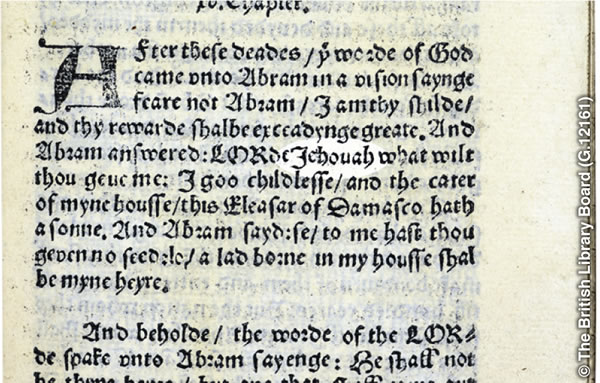 xv. Chapter.
After these deades / yͤ worde of God
came vnto Abram in a vision saynge
feare not Abram / I am thy shilde /
and thy rewarde shalbe exceadynge greate. And
Abram answered: LORde Jehouah what wilt
thou geue me: I goo childlesse / and the cater
of myne housse / this Eleasar of Damasco hath
a sonne. And Abram sayd: se / to me hast thou
geven no seed: lo / a lad borne in my housse shal
be myne heyre.
And beholde / the worde of the LOR⸗
de spake vnto Abram sayenge: He shall not
be thyne heyre / but one that
© The British Library Board (G.12161)